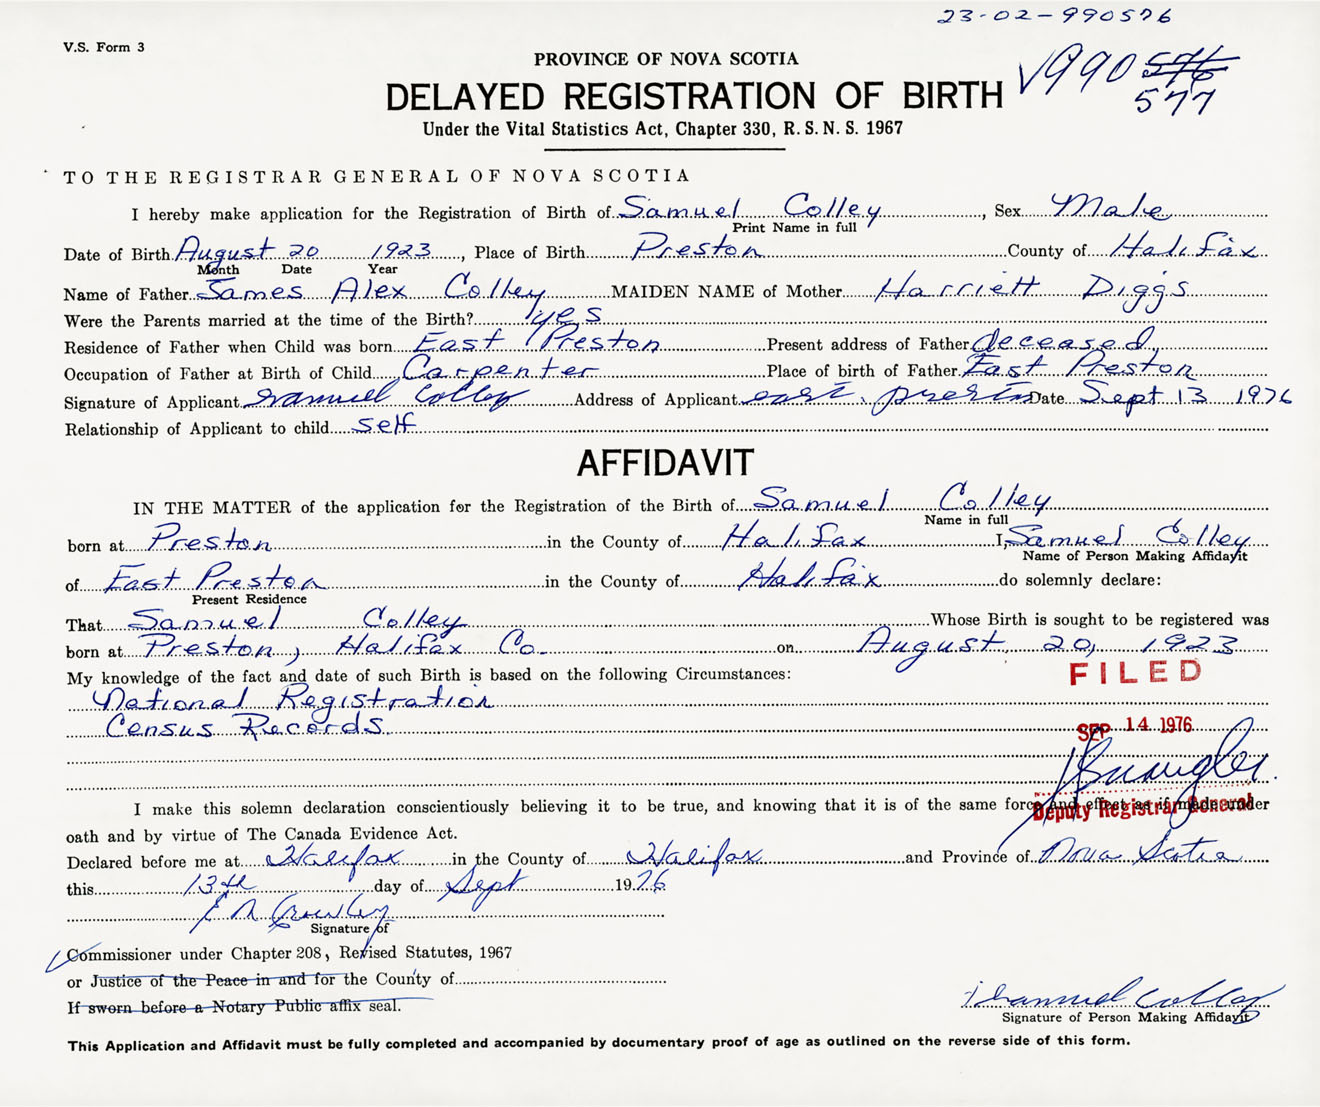 23-02-990576
V.S. Form 3
PROVINCE OF NOVA SCOTIA
DELAYED REGISTRATION OF BIRTH
√990 576
577
Under the Vital Statistics Act, Chapter 330, R.S.N.S. 1967
TO THE REGISTRAR GENERAL OF NOVA SCOTIA
I hereby make application for the Registration of Birth of Samuel Colley, Sex Male
Print Name in full
Date of Birth August 20 1923, Place of Birth Preston County of Halifax
Month Date Year
Name of Father James Alex Colley MAIDEN NAME of Mother Harriett Diggs
Were the Parents married at the time of the Birth? yes
Residence of Father when Child was born East Preston Present address of Father deceased
Occupation of Father at Birth of Child Carpenter Place of birth of Father East Preston
Signature of Applicant Samuel Colley Address of Applicant east. preston Date Sept 13 1976
Relationship of Applicant to child self
AFFIDAVIT
IN THE MATTER of the application for the Registration of the Birth of Samuel Colley
Name in full
born at Preston in the County of Halifax I, Samuel Colley
Name of Person Making Affidavit
of East Preston in the County of Halifax do solemnly declare:
Present Residence
That Samuel Colley Whose Birth is sought to be registered was
born at Preston, Halifax Co. on August 20, 1923
My knowledge of the fact and date of such Birth is based on the following Circumstances:
FILED
National Registration
Census Records
SEP 14 1976
I make this solemn declaration conscientiously believing it to be true, and knowing that it is of the same force and effect as if made under
Deputy Registrar General
oath and by virtue of The Canada Evidence Act.
Declared before me at Halifax in the County of Halifax and Province of Nova Scotia
this 13th day of Sept 1976
Signature of
Commissioner under Chapter 208, Revised Statutes, 1967
or Justice of the Peace in and for the County of
If sworn before a Notary Public affix seal.
Samuel Colley
Signature of Person Making Affidavit
This Application and Affidavit must be fully completed and accompanied by documentary proof of age as outlined on the reverse side of this form.